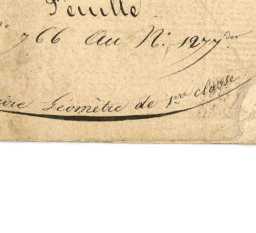 Feuille
766 au N.° 1277
Géomètre de 1re classe